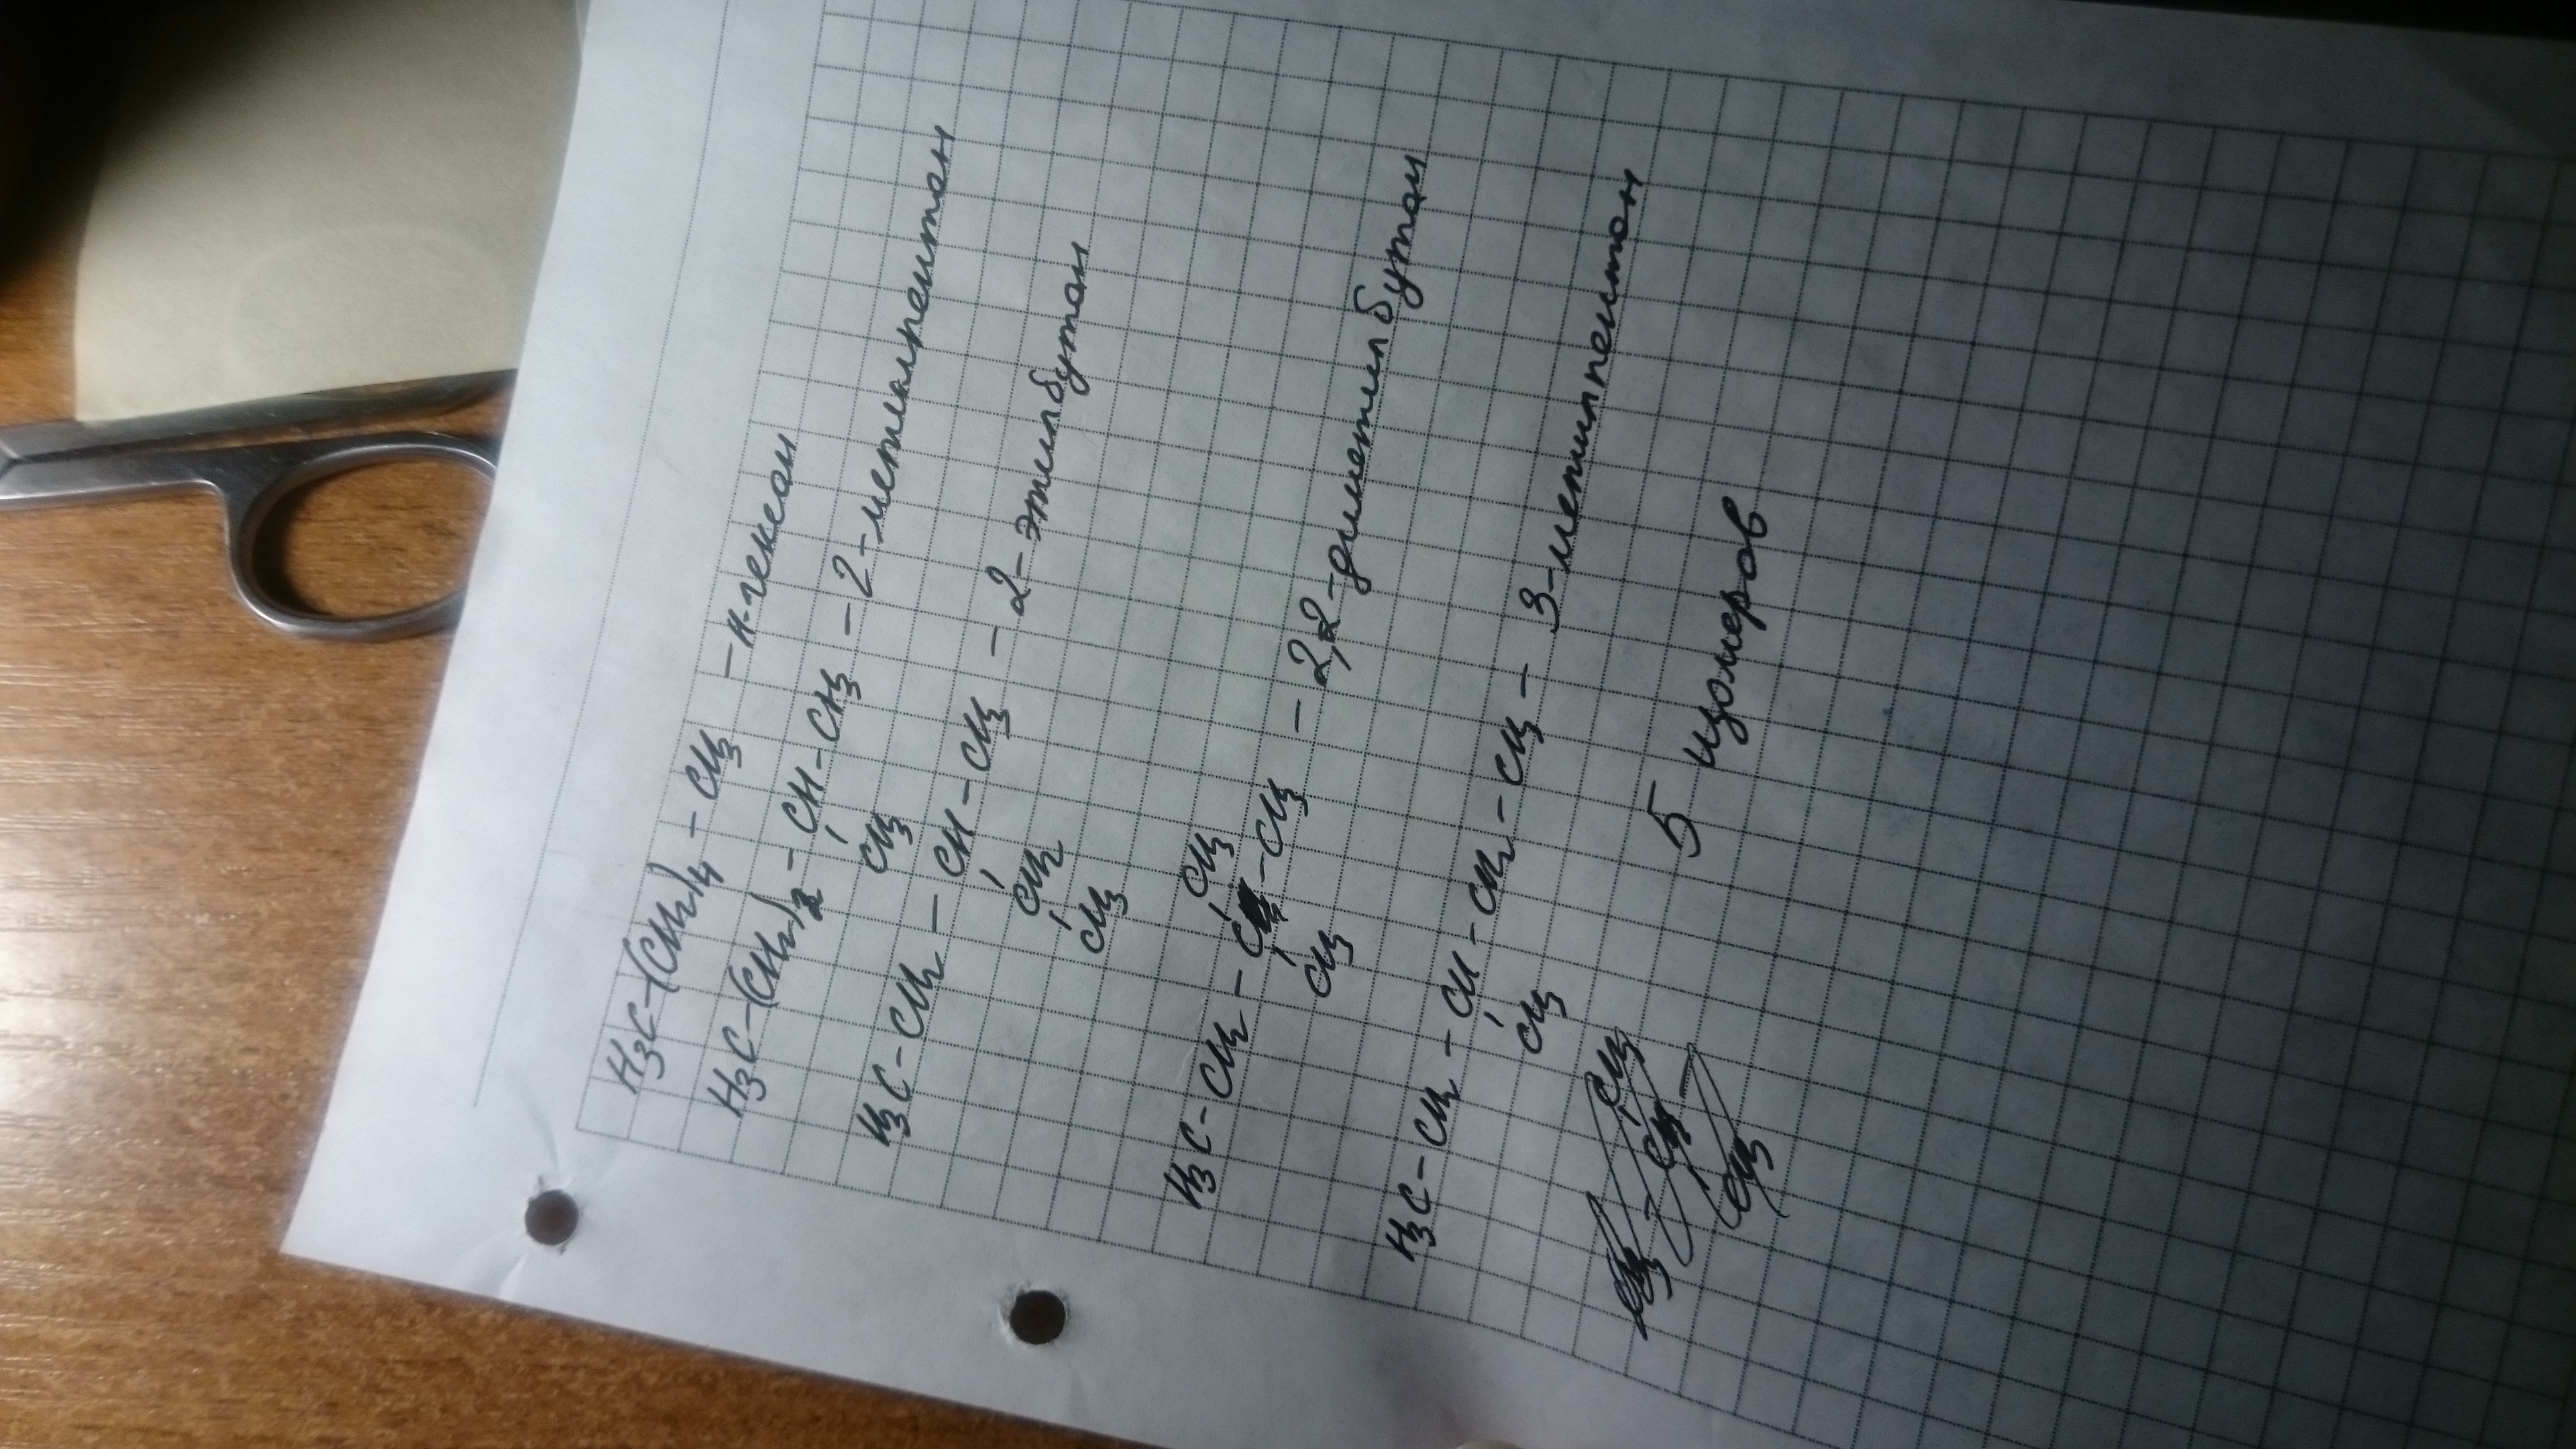 H3C-(CH2)4 - CH3 - н-гексан
H3C-(CH2)2 - CH - CH3 - 2-метилпентан
CH3
H3C - CH2 - CH - CH3 - 2-этилбутан
CH2
CH3
CH3
H3C - CH2 - C - CH3 - 2,2-диметилбутан
CH3
H3C - CH2 - CH - CH2 - CH3 - 3-метилпентан
CH3
5 изомеров